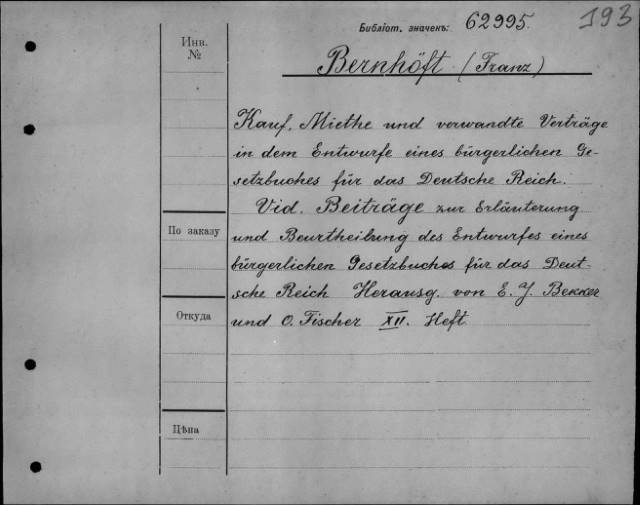 Библіот. значекъ: 62995.
193
Инв.
№
Bernhöft (Franz)
Kauf, Miethe und verwandte Verträge
in dem Entwurfe eines bürgerlichen Ge-
setzbuches für das Deutsche Reich.
Vid. Beiträge zur Erläuterung
По заказу
und Beurtheilung des Entwurfes eines
bürgerlichen Gesetzbuches für das Deut-
sche Reich Herausg. von E. J. Bekker
Откуда
und O. Fischer XII. Heft
Цѣна